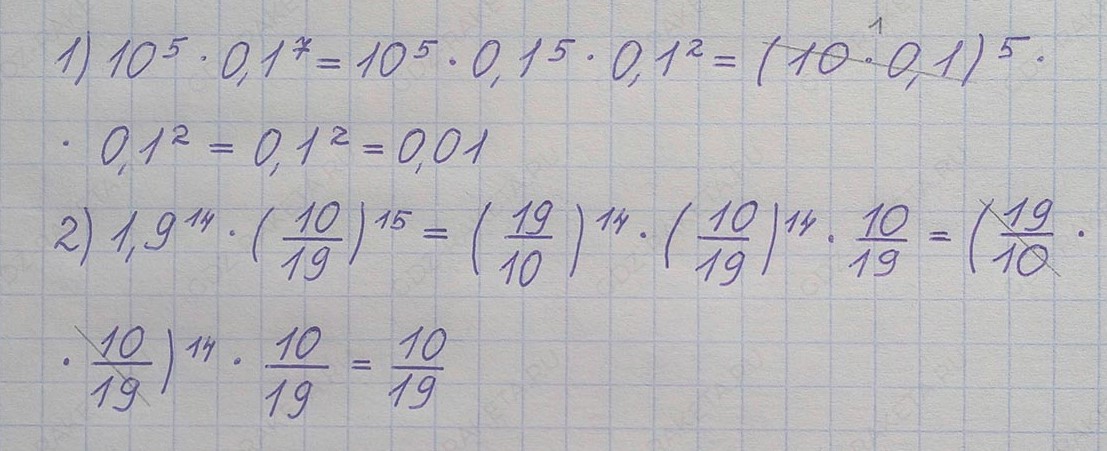 1) 10⁵ · 0,1⁷ = 10⁵ · 0,1⁵ · 0,1² = (10 · 0,1)⁵ ·
1
· 0,1² = 0,1² = 0,01
2) 1,9¹⁴ · (10/19)¹⁵ = (19/10)¹⁴ · (10/19)¹⁴ · 10/19 = (19/10 ·
· 10/19)¹⁴ · 10/19 = 10/19